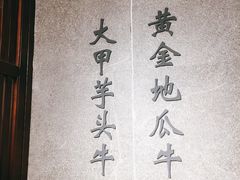 黄金地瓜牛
大甲芋头牛